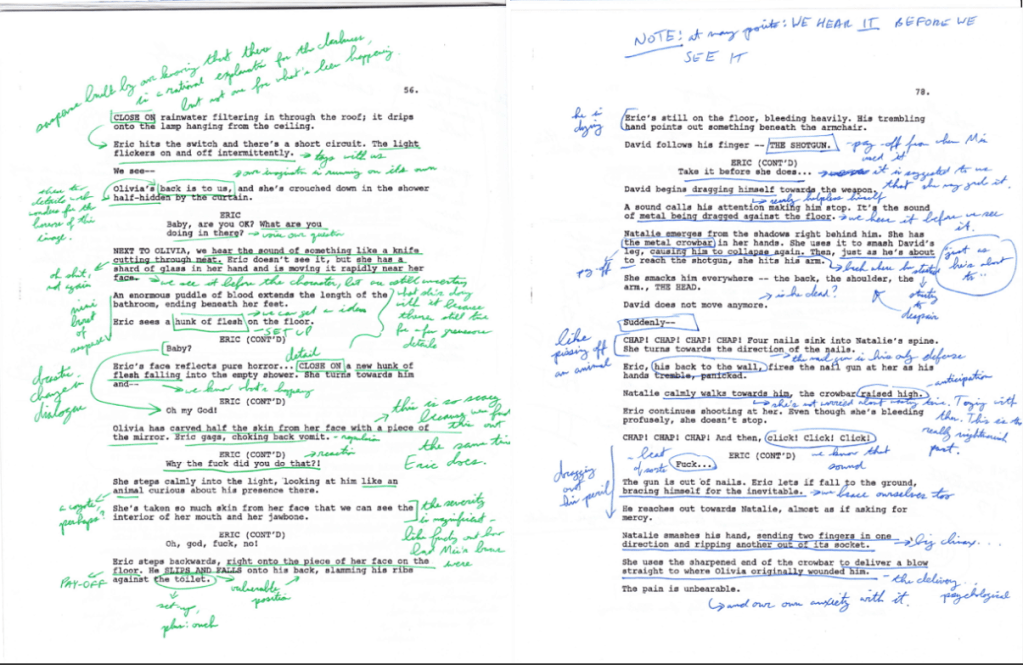 suspense built by our knowing that there
is a rational explanation for the darkness,
but not one for what's been happening
56.
CLOSE ON rainwater filtering in through the roof; it drips
onto the lamp hanging from the ceiling.
Eric hits the switch and there's a short circuit. The light
flickers on and off intermittently. toys with us
We see-- our imagination is running on its own
Olivia's back is to us, and she's crouched down in the shower
half-hidden by the curtain.
image.
ERIC
Baby, are you OK? What are you
doing in there? voice our question
NEXT TO OLIVIA, we hear the sound of something like a knife
cutting through meat. Eric doesn't see it, but she has a
shard of glass in her hand and is moving it rapidly near her
face. we see it before the character, but are still uncertain
oh shit,
not again
An enormous puddle of blood extends the length of the
bathroom, ending beneath her feet.
mini
burst
of
suspense
we can get a idea
Eric sees a hunk of flesh on the floor.
SET UP
details
ERIC (CONT'D)
Baby?
detail
Eric's face reflects pure horror... CLOSE ON a new hunk of
flesh falling into the empty shower. She turns towards him
and-- we know what's happening
drastic
change in
dialogue
ERIC (CONT'D)
Oh my God!
this is so scary
because we find
this out
the same time
Eric does.
Olivia has carved half the skin from her face with a piece of
the mirror. Eric gags, choking back vomit. repulsion
ERIC (CONT'D) reaction
Why the fuck did you do that?!
She steps calmly into the light, looking at him like an
animal curious about his presence there.
a coyote,
perhaps?
She's taken so much skin from her face that we can see the
interior of her mouth and her jawbone.
the severity
is magnified -
like finding out how
bad Mia's
were
ERIC (CONT'D)
Oh, god, fuck, no!
Eric steps backwards, right onto the piece of her face on the
floor. He SLIPS AND FALLS onto his back, slamming his ribs
against the toilet.
PAY-OFF
vulnerable
position
set up,
plus: ouch
NOTE: at many points: WE HEAR IT BEFORE WE
SEE IT
78.
he is
dying
Eric's still on the floor, bleeding heavily. His trembling
hand points out something beneath the armchair.
David follows his finger -- THE SHOTGUN. pay-off from when Mia
used it
ERIC (CONT'D)
Take it before she does... it is suggested to us
that she may grab it.
David begins dragging himself towards the weapon.
nearly helpless himself
A sound calls his attention making him stop. It's the sound
of metal being dragged against the floor. we hear it before we see
it.
Natalie emerges from the shadows right behind him. She has
the metal crowbar in her hands. She uses it to smash David's
leg, causing him to collapse again. Then, just as he's about
to reach the shotgun, she hits his arm. back where he started
just as
he's about
to..
She smacks him everywhere -- the back, the shoulder, the
arm., THE HEAD.
is he dead?
David does not move anymore.
to
despair
Suddenly--
CHAP! CHAP! CHAP! CHAP! Four nails sink into Natalie's spine.
She turns towards the direction of the nails.
like
pissing off
an animal
the nail gun is his only defense
Eric, his back to the wall, fires the nail gun at her as his
hands tremble, panicked.
anticipation
Natalie calmly walks towards him, the crowbar raised high.
she's not worried about
Toying with
them. This is the
really frightening
part.
Eric continues shooting at her. Even though she's bleeding
profusely, she doesn't stop.
CHAP! CHAP! CHAP! And then, click! Click! Click!
we know that
sound
beat
of sorts
ERIC (CONT'D)
Fuck...
dragging
out
his peril
The gun is out of nails. Eric lets if fall to the ground,
bracing himself for the inevitable. we brace ourselves too
He reaches out towards Natalie, almost as if asking for
mercy.
Natalie smashes his hand, sending two fingers in one
direction and ripping another out of its socket. big climax...
She uses the sharpened end of the crowbar to deliver a blow
straight to where Olivia originally wounded him.
the delivery
psychological
The pain is unbearable.
and our own anxiety with it.